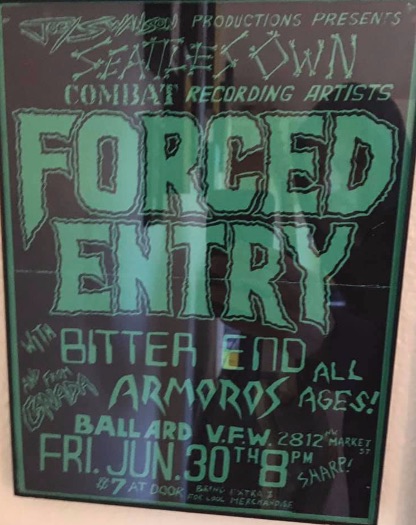 JOEY SWANSON PRODUCTIONS PRESENTS
SEATTLES ÖWN
COMBAT RECORDING ARTISTS
FORCED
ENTRY
WITH BITTER END
AND FROM CANADA ARMOROS ALL AGES!
BALLARD V.F.W. 2812 NW MARKET ST
FRI. JUN. 30TH 8PM SHARP!
$7 AT DOOR BRING EXTRA $
FOR COOL MERCHANDISE